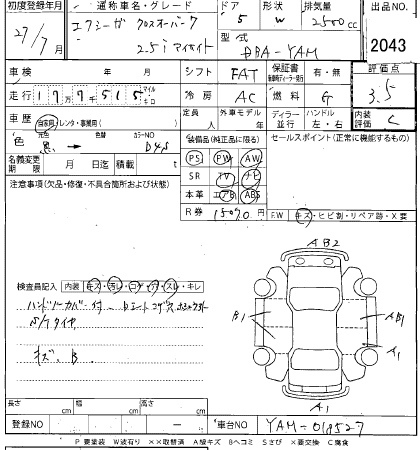 初度登録年月 通称車名・グレード ドア 形状 排気量 出品NO.
エクシーガ クロスオーバー7 5 W 2500cc
27/7月 2.5i アイサイト 型式 DBA-YAM 2043
車検 年 月 シフト FAT 保証書 有・無 評価点
走行 177515 マイル キロ 冷房 AC 燃料 G 3.5
車歴 自家用・レンタ・事業用( ) 定員 人 外車モデル 年 ディラー・並行 ハンドル 左・右 内装評価 C
元色 色替 カラーNO
色 黒 → D4S
装備品(純正品に限る) セールスポイント(正常に機能するもの)
名義変更期限 月 日迄 積載 t
PS PW AW
注意事項(欠品・修復・不具合箇所および状態)
SR TV ナビ
本革 エアB ABS
R券 15070円 F.W キズ・ヒビ割・リペア跡・X要
AB2
検査員記入 内装 キズ・汚レ・コゲ・穴・スレ・キレ
ハンドルカバー付
S/Tタイヤ
キズ、B
B1 AB1
A1
A1
長さ cm 幅 cm 高さ cm
登録NO ー 車台NO YAM-018527
P要塗装 W波有り XX取替済 A線キズ Bヘコミ Sさび X要交換 C腐食